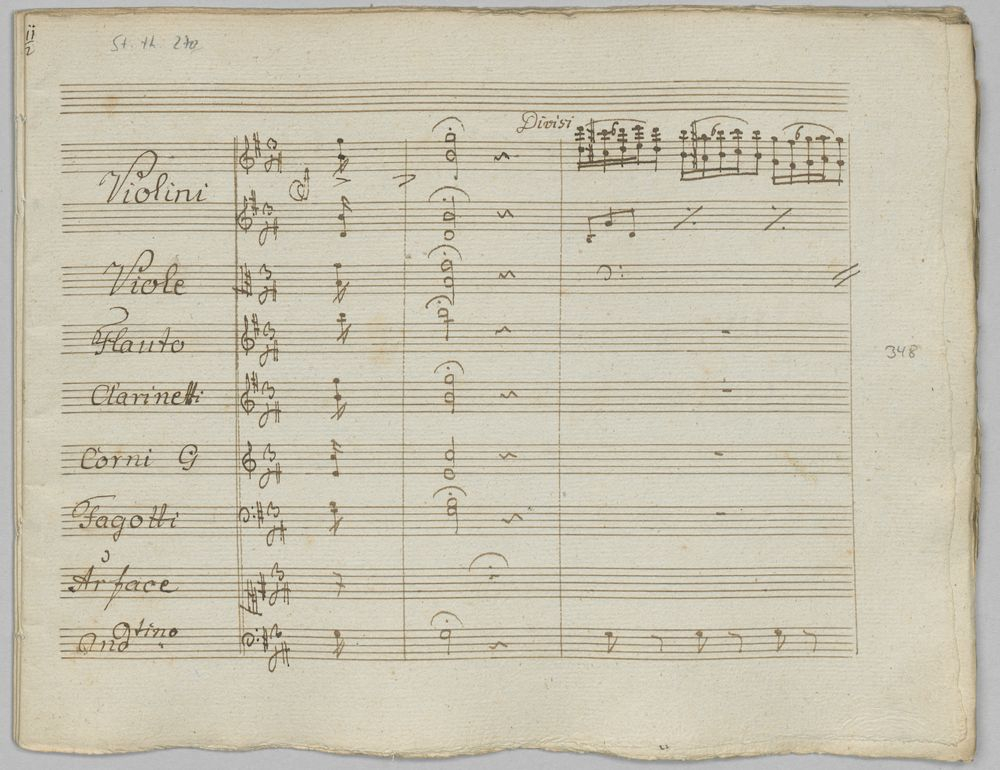 ii/2
St. th. 270
Divisi
6 6 6
Violini
Viole
Flauto
348
Clarinetti
Corni G
Fagotti
Arface
Andtino